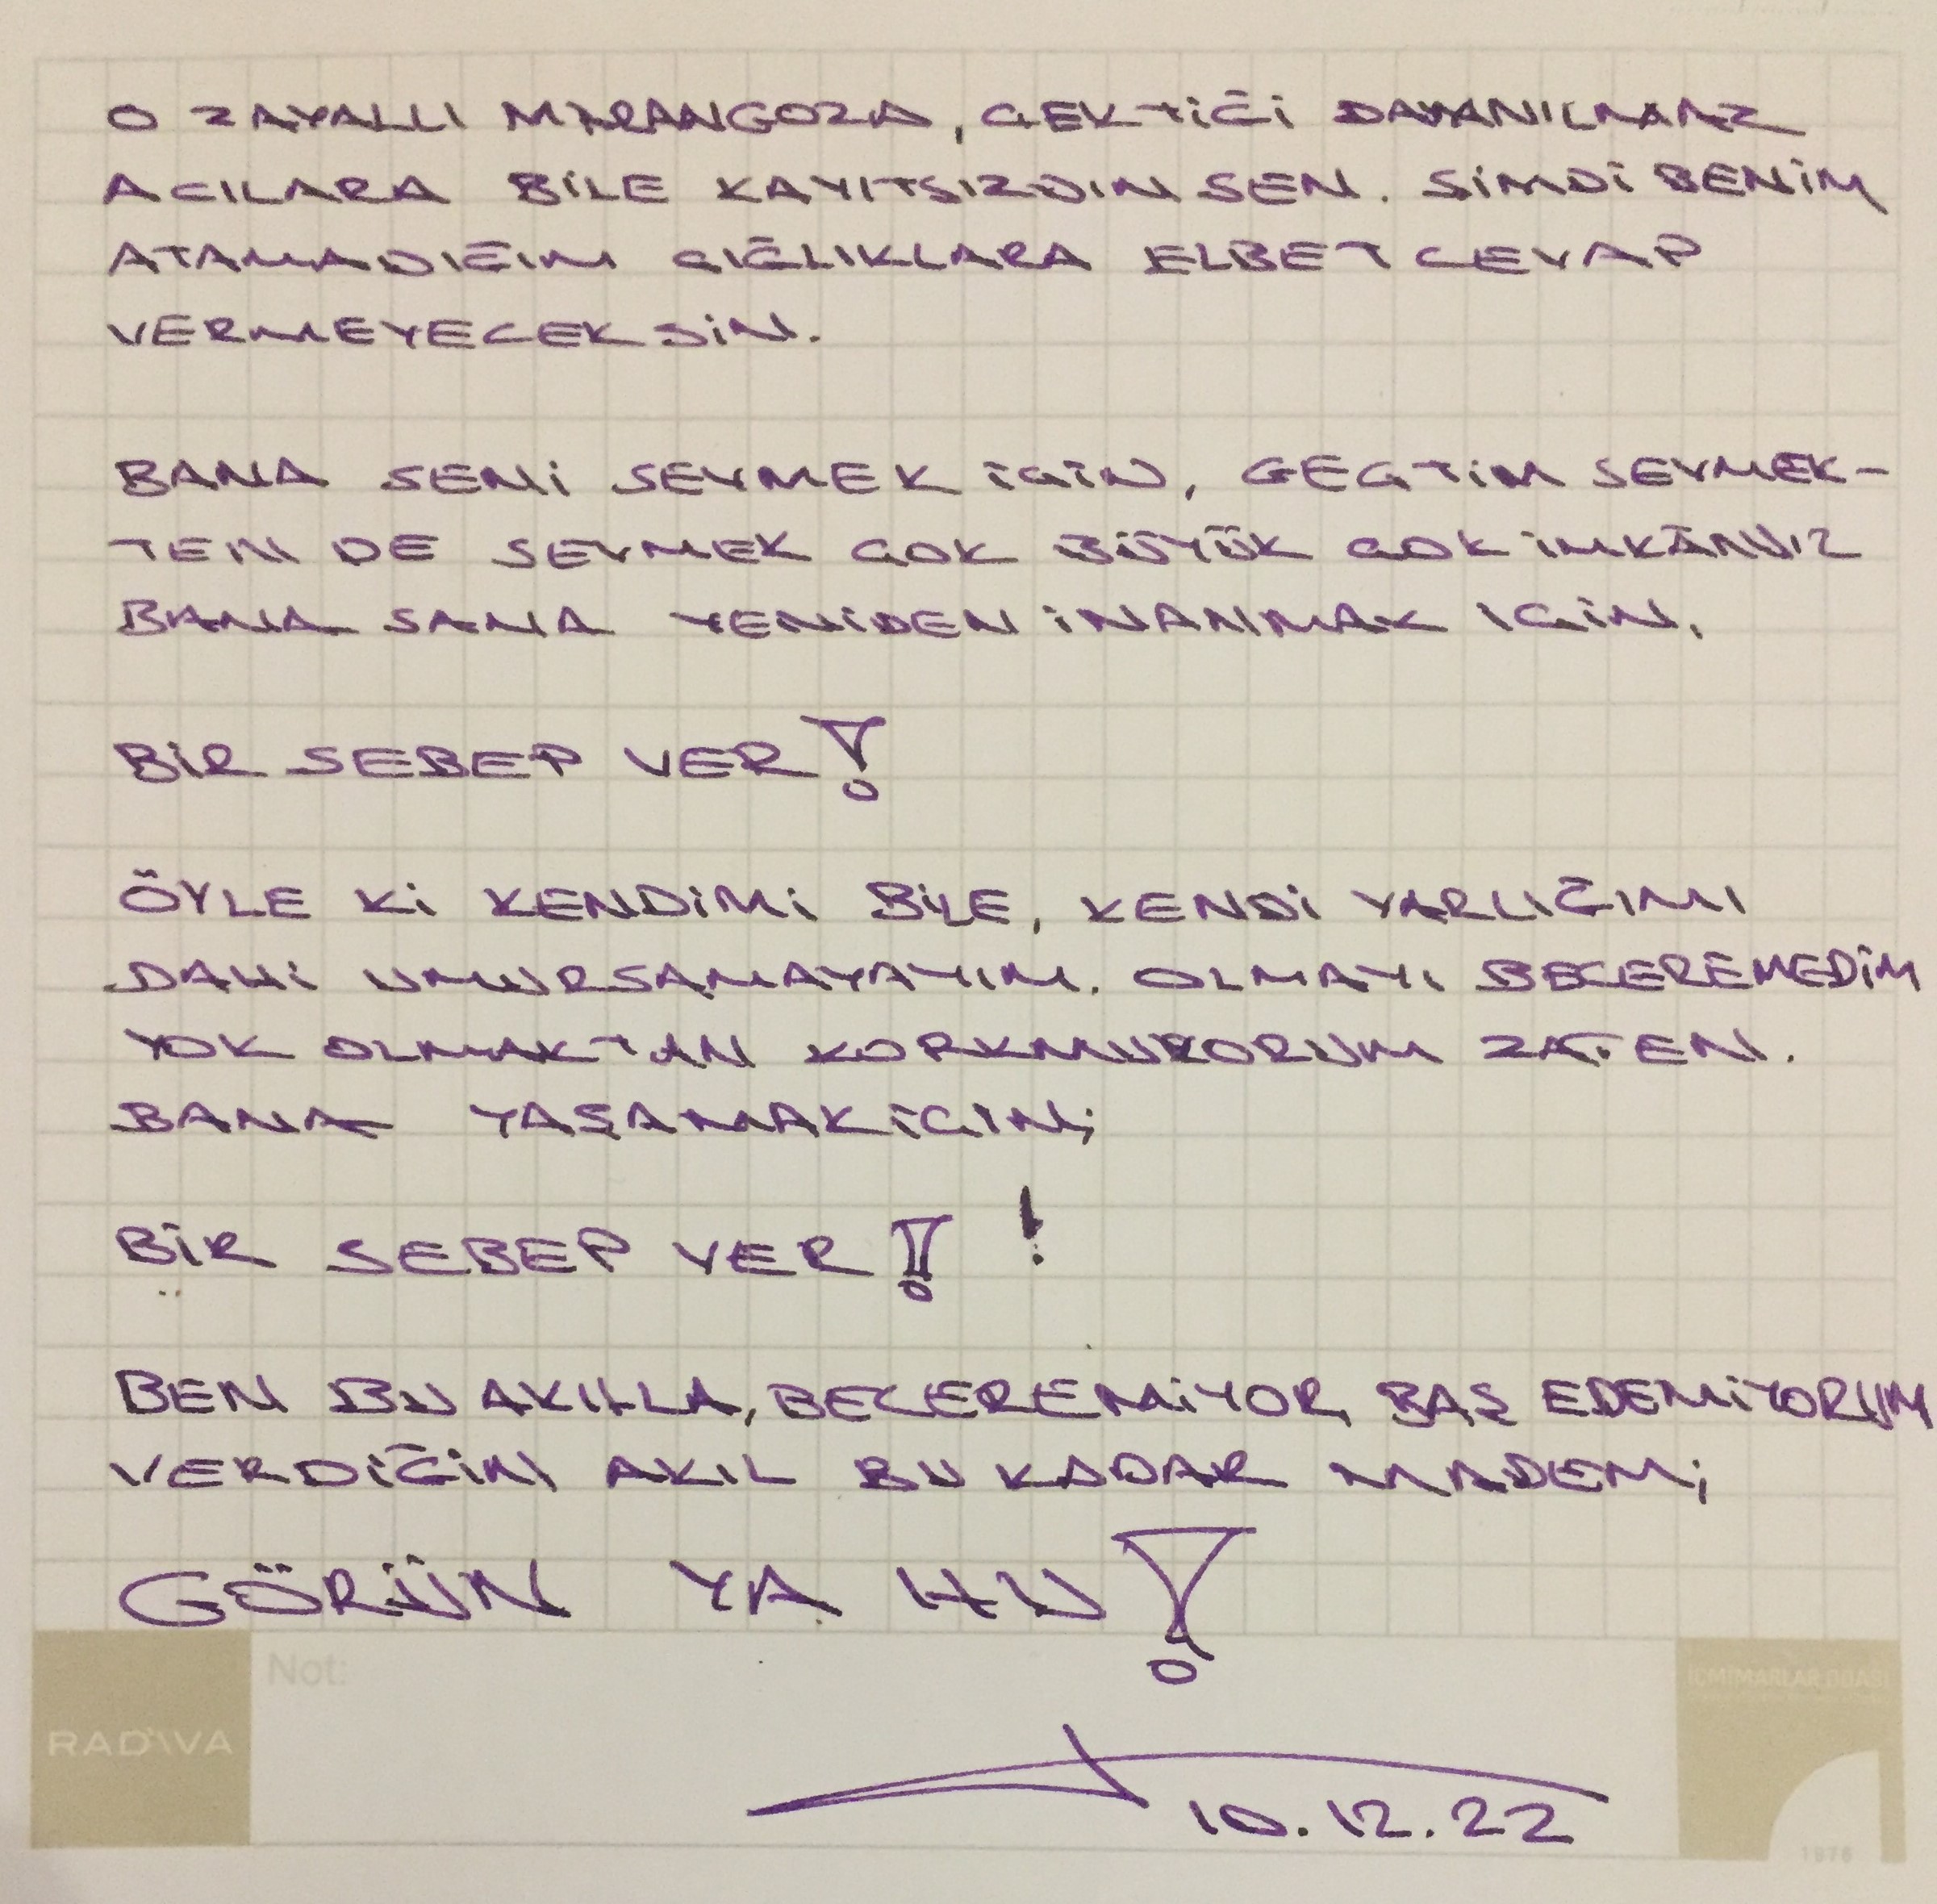 O ZAVALLI MARANGOZA, ÇEKTİĞİ DAYANILMAZ
ACILARA BİLE KAYITSIZDIN SEN. ŞİMDİ BENİM
ATAMADIĞIM ÇIĞLIKLARA ELBET CEVAP
VERMEYECEKSİN.
BANA SENİ SEVMEK İÇİN, GEÇTİM SEVMEK-
TEN DE SEVMEK ÇOK BÜYÜK ÇOK İMKÂNSIZ
BANA SANA YENİDEN İNANMAK IÇİN,
BİR SEBEP VER!
ÖYLE Kİ KENDİMİ BİLE, KENDİ VARLIĞIMI
DAHİ UMURSAMAYAYIM. OLMAYI BECEREMEDİM
YOK OLMAKTAN KORKMUYORUM ZATEN.
BANA YAŞAMAK İÇİN;
BİR SEBEP VER! !
BEN BU AKILLA, BECEREMİYOR, BAŞ EDEMİYORUM
VERDİĞİN AKIL BU KADAR MADEM;
GÖRÜN YA HU!
Not:
İÇMİMARLAR ODASI
RADİVA
10.12.22
1976